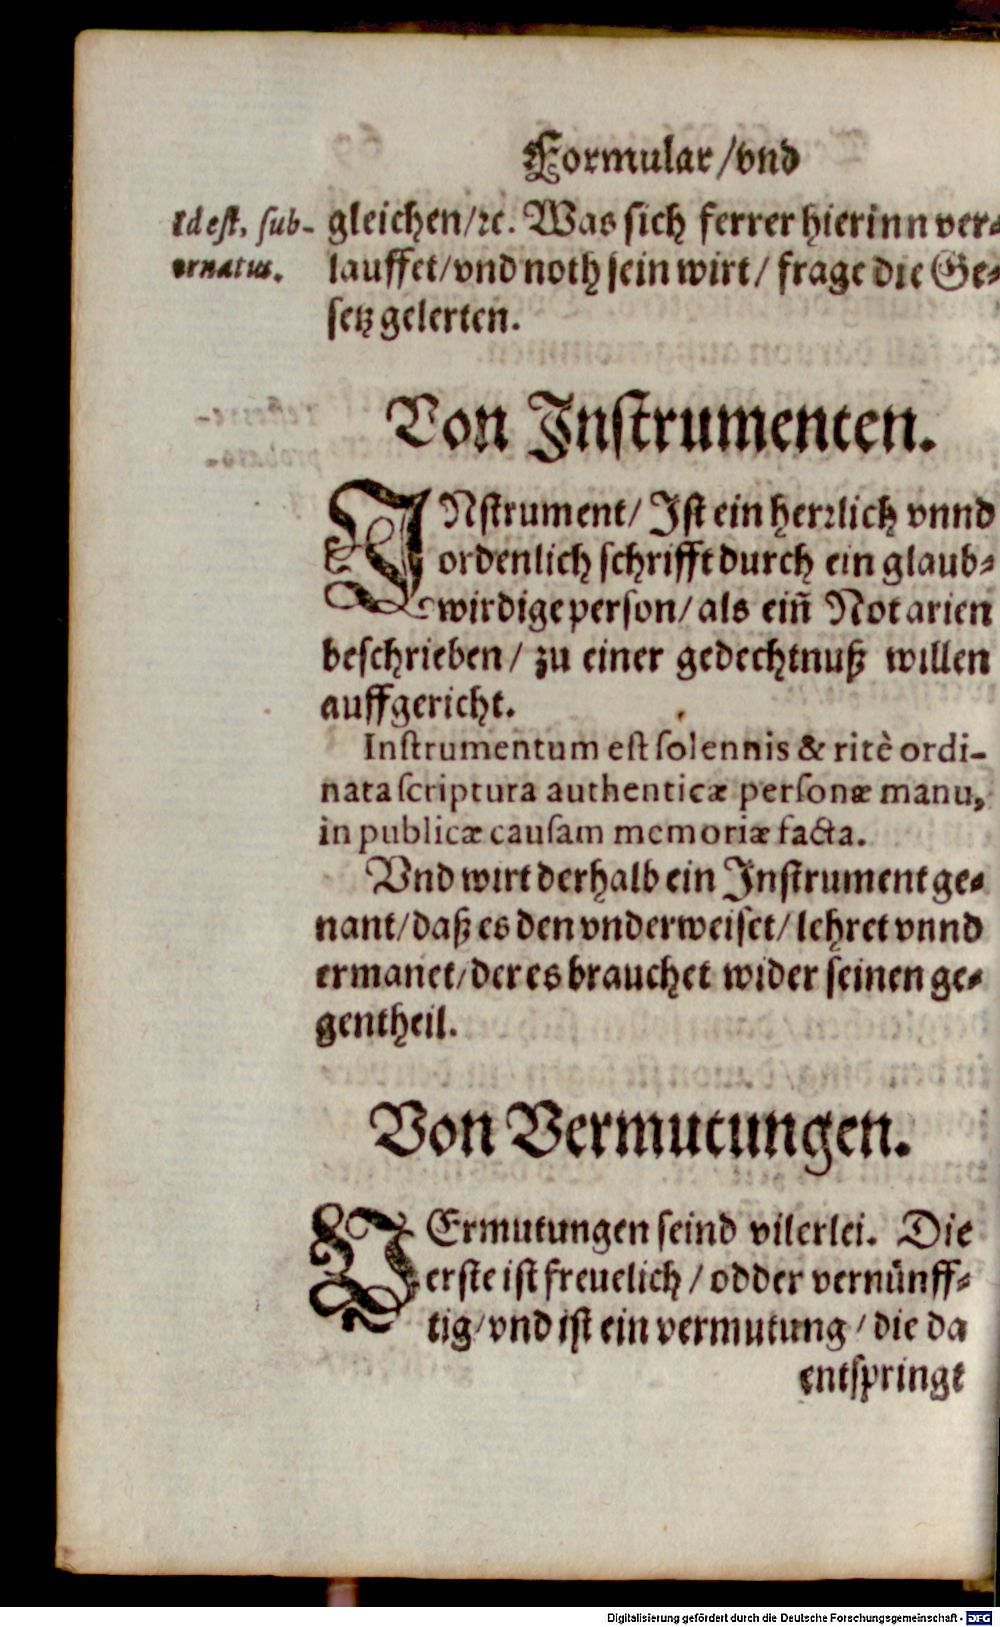 Formular/vnd
Id est, sub-
ornatus.
gleichen/ꝛc. Was sich ferrer hierinn ver⸗
lauffet/vnd noth sein wirt/ frage die Ge⸗
setz gelerten.
Von Instrumenten.
INstrument/ Ist ein herꝛlich vnnd
ordenlich schrifft durch ein glaub⸗
wirdige person/ als eiñ Notarien
beschrieben/ zu einer gedechtnuß willen
auffgericht.
Instrumentum est solennis & ritè ordi-
nata scriptura authenticæ personæ manu,
in publicæ causam memoriæ facta.
Vnd wirt derhalb ein Instrument ge⸗
nant/daß es den vnderweiset/ lehret vnnd
ermanet/der es brauchet wider seinen ge⸗
gentheil.
Von Vermutungen.
VErmutungen seind vilerlei. Die
erste ist freuelich / odder vernünff⸗
tig/vnd ist ein vermutung / die da
entspringt
Digitalisierung gefördert durch die Deutsche Forschungsgemeinschaft - DFG